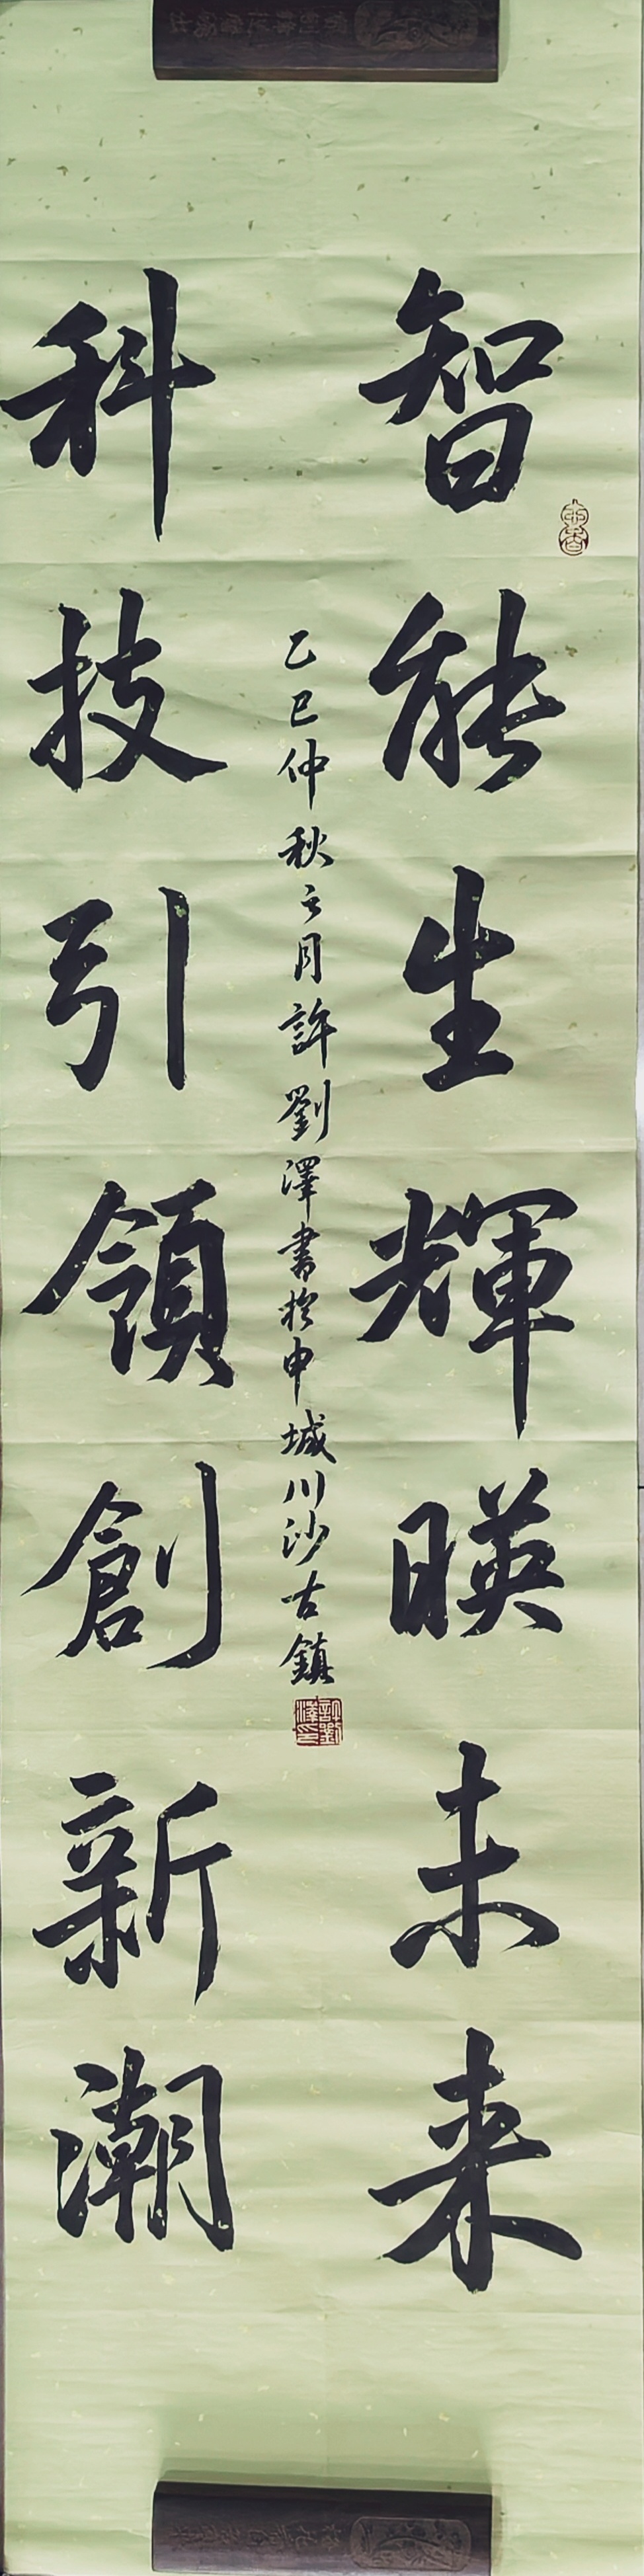 智能生輝暎未来
科技引領創新潮
乙巳仲秋之月許劉澤書於申城川沙古鎮
許劉澤印